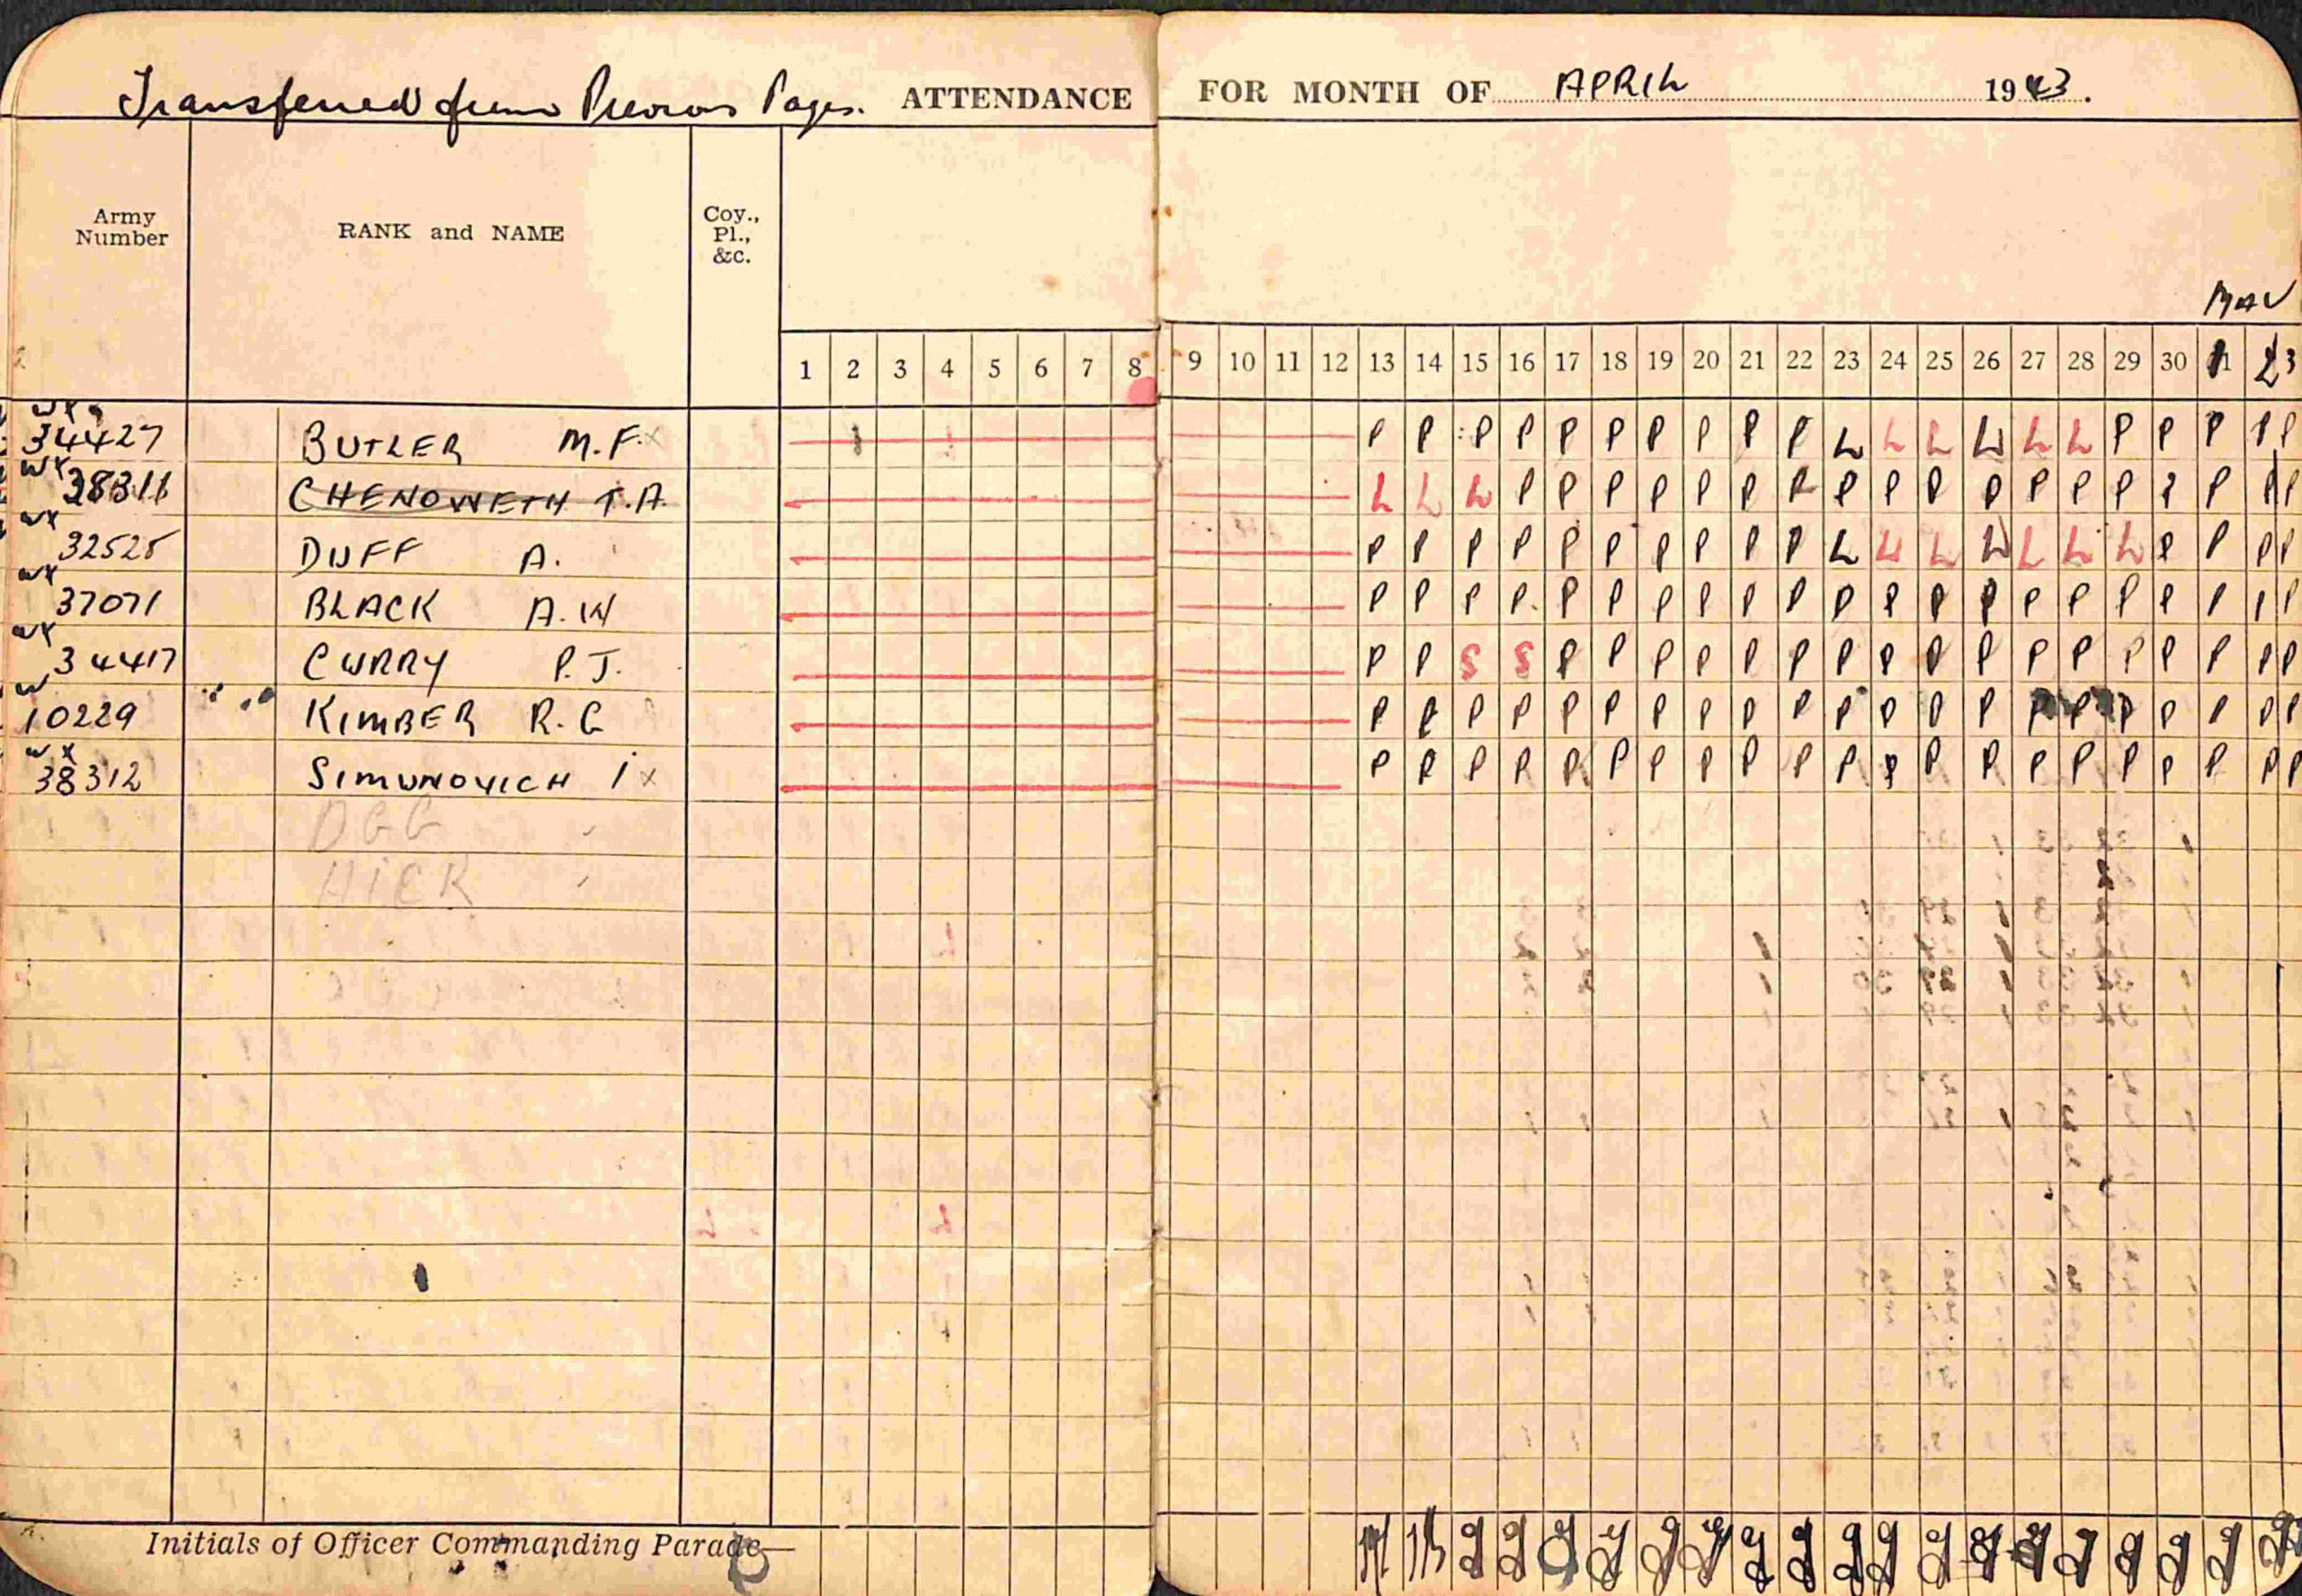 Transferred from Previous Pages. ATTENDANCE FOR MONTH OF APRIL 1943.
Army Number RANK and NAME Coy., Pl., &c.
MAY
1 2 3 4 5 6 7 8 9 10 11 12 13 14 15 16 17 18 19 20 21 22 23 24 25 26 27 28 29 30 1 2 3
WX 34427 BUTLER M.F. x P P P P P P P P P P L L L L L L P P P P P
WX 38311 CHENOWETH T.A. L L L P P P P P P P P P P P P P P P P P P
WX 32525 DUFF A. P P P P P P P P P P L L L L L L L P P P P
WX 37071 BLACK A.W P P P P P P P P P P P P P P P P P P P P P
WX 34417 CURRY P.J. P P S S P P P P P P P P P P P P P P P P P
W 10229 KIMBER R.G P P P P P P P P P P P P P P P P P P P P P
WX 38312 SIMUNOVICH I x P P P P P P P P P P P P P P P P P P P P P
OGG
HICK
Initials of Officer Commanding Parade—